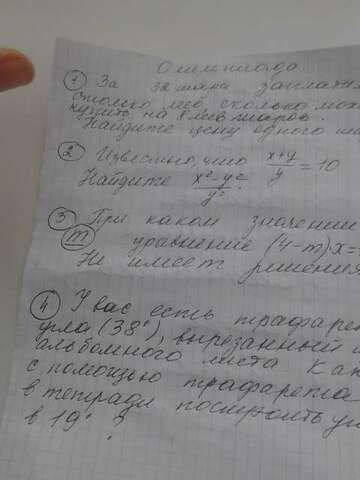 Олимпиада.
① За 32 шара заплатили
столько лев, сколько мож
купить на 8 лев шаров.
Найдите цену одного ша
② Известно, что x+y/y = 10
Найдите x²-y²/y².
③ При каком значении
m уравнение (4-m)·x=
Не имеет решения
④ У вас есть трафарет
угла (38°), вырезанный и
альбомного листа. Как
с помощью трафарета
в тетради построить уг
в 19° ?